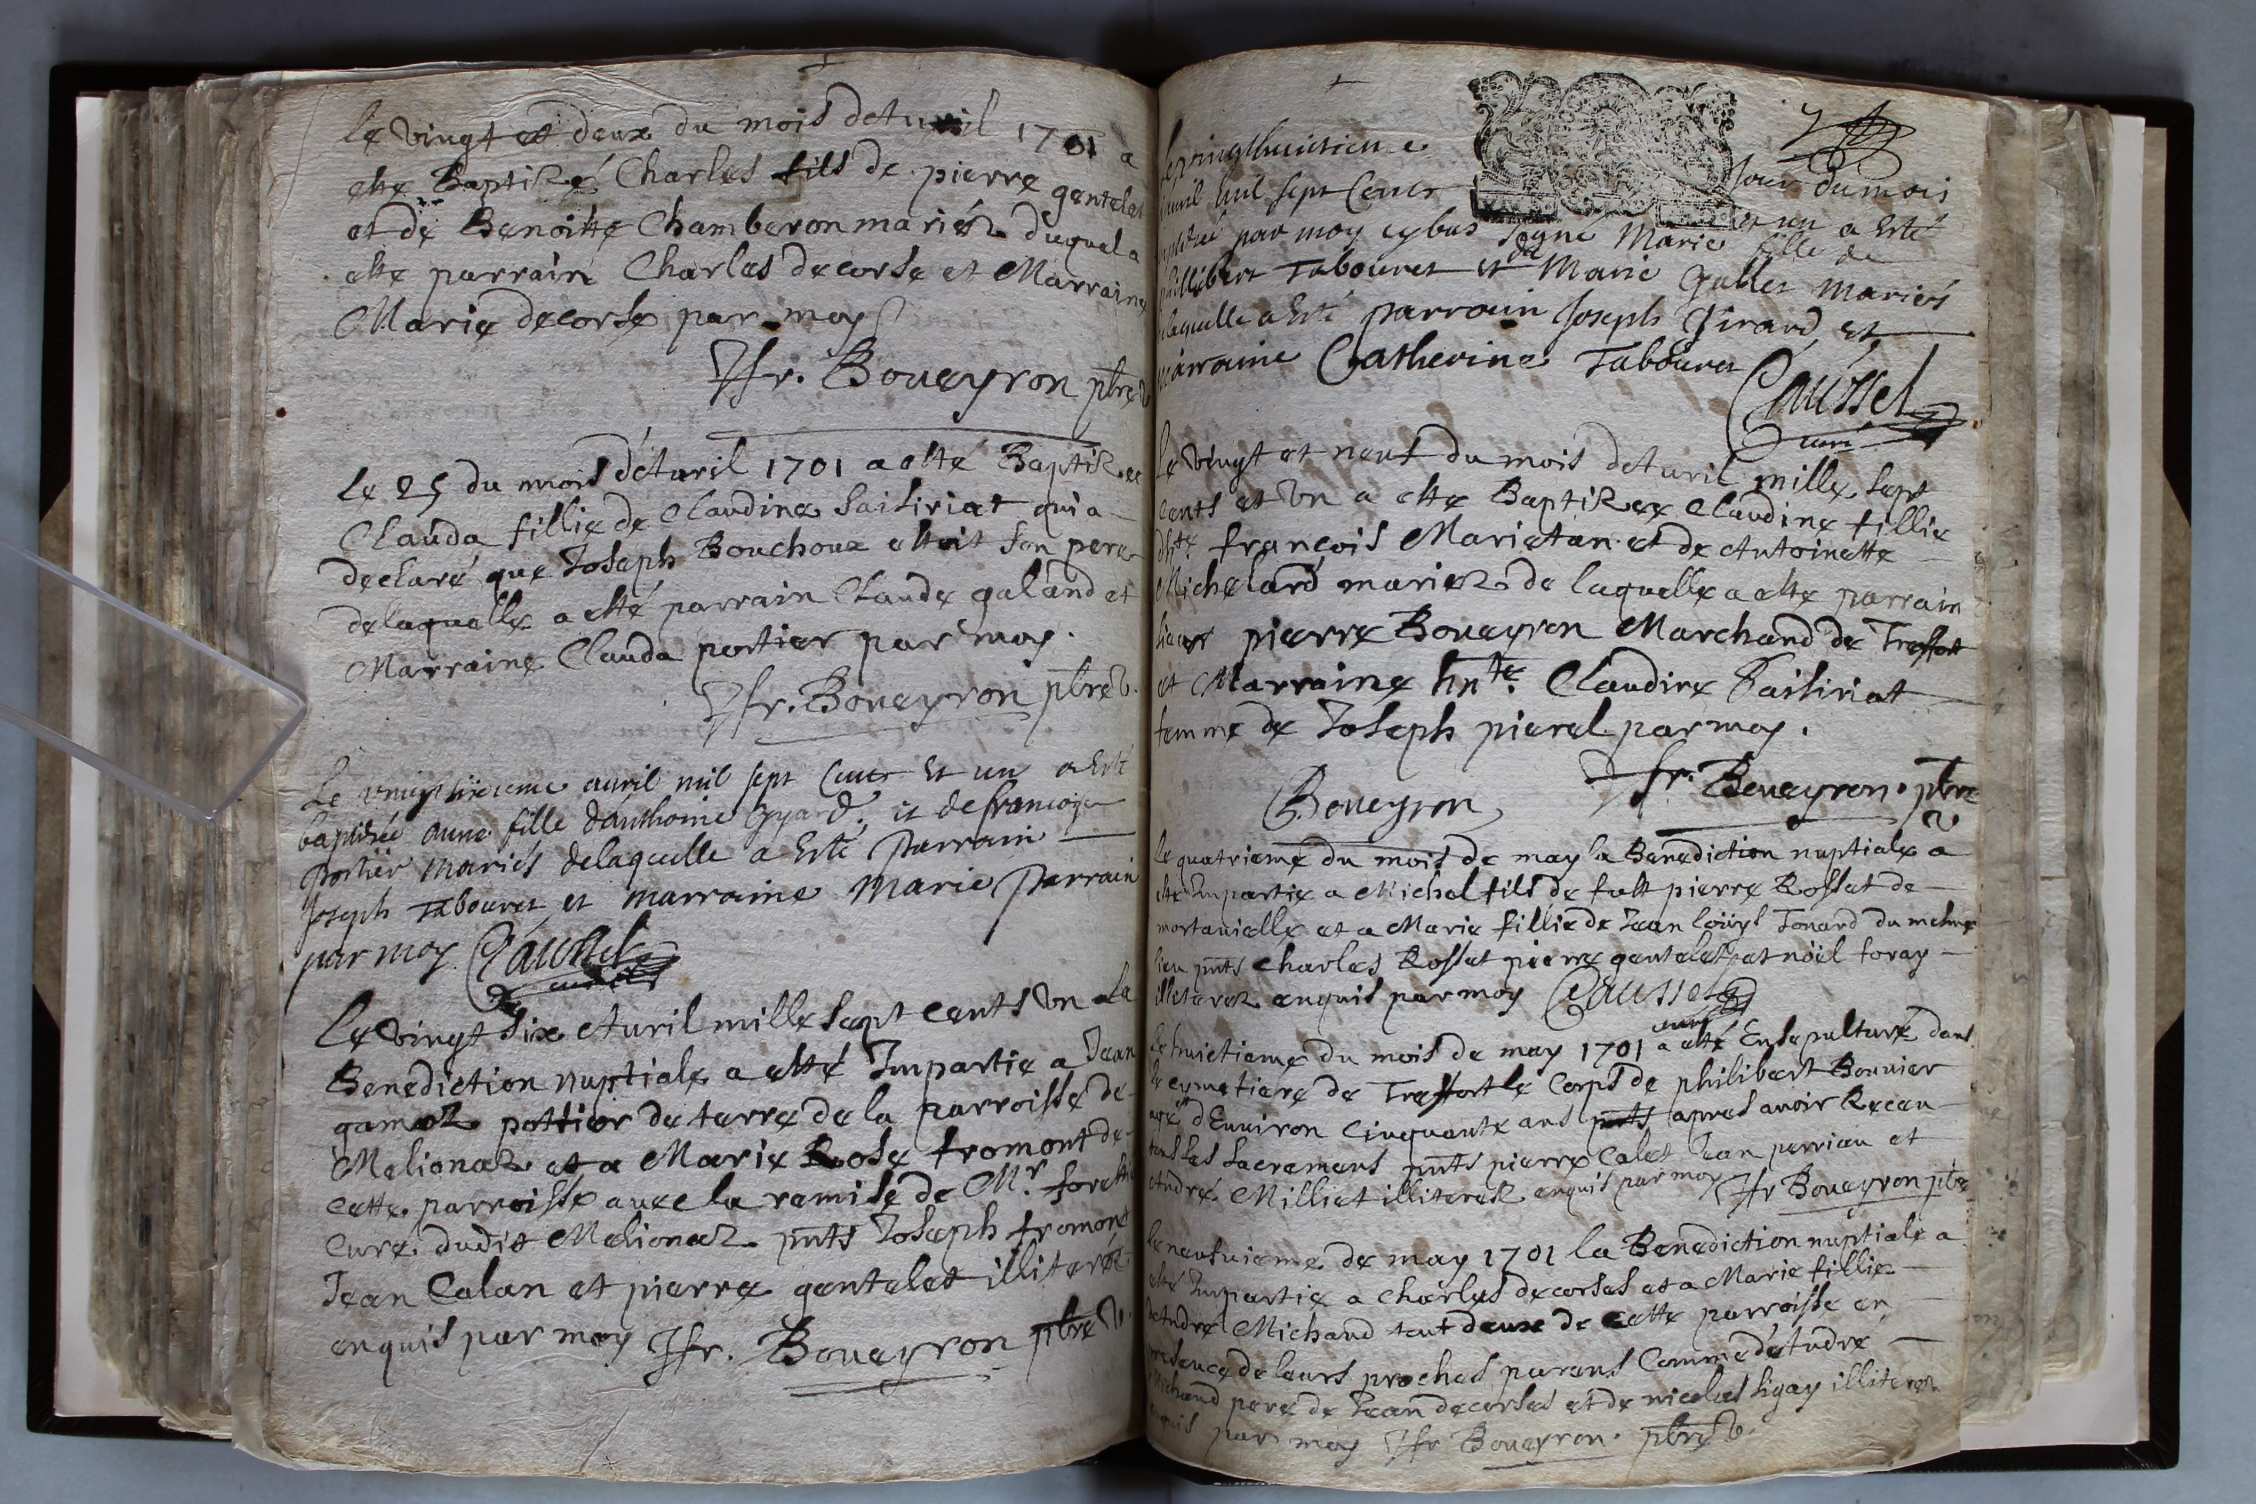 le vingt et deux du mois d'Avril 1701 a
esté Baptizé Charles fils de pierre gentelet
et de Benoitte Chamberon mariéz duquel a
esté parrain Charles decorse et Marraine
Marie decorse par moy
Jfr. Boueyron pbre v.
Le 25 du mois d'Avril 1701 a esté Baptizée
Clauda fillie de Claudine Saisiriat qui a
declaré que Joseph Bouchoux estoit son pere
delaquelle a esté parrain Claude galand et
Marraine Clauda portier par moy.
Jfr. Boueyron pbre v.
Le vingtsixieme avril mil sept Cents et un a Esté
baptisée anne fille d'anthoine et de francoise
portier mariés delaquelle a Esté parrain
Joseph Tabouret et marraine Marie Perrain
par moy Caussel
curé
Le vingt six Avril mille sept cents un a la
Benediction nuptiale a esté Impartie a Jean
gamoz pottier de terre de la parroisse de
Melionaz et a Marie Rose fromont de
cette parroisse avec la remise de Mr.
Curé dudit Melionaz pnts Joseph fromont
Jean Calan et pierre gentelet illiterez
enquis par moy Jfr. Boueyron pbre v.
Le vingthuictieme
jour du mois
d'avril mil sept Cents
et un a Esté
baptisé par moy cybas signé Marie fille de
phillibert Tabouret et de Marie Gallet mariés
delaquelle a Esté parrain Joseph Girard, et
marraine Catherine Tabouret
Caussel
curé
Le vingt et neuf du mois d'Avril mille sept
cents et Vn a esté Baptizée Claudine fillie
françois Marietan et de Antoinette
Michelard mariez de laquelle a esté parrain
sieur pierre Boueyron Marchand de Treffort
et Marraine hnte. Claudine Saisiriat
femme de Joseph pierel par moy.
Jfr. Boueyron pbre
v.
Boueyron
Le quatrieme du mois de may la Benediction nuptiale a
esté Impartie a Michel fils de fust pierre Rosset de
mortanielle et a Marie fillie de Jean louys Tonard du mesme
lieu pnts Charles Rosset pierre gentelet et nöel foray
illeterez enquis par moy Caussel
curé
Le huictieme du mois de may 1701 a esté Ensepulturé dans
le cymetiere de Treffort le Corps de philibert Bouvier
agé d'Environ Cinquante ans pnts apres avoir Receu
tous les sacremens pnts pierre Calet Jean perrian et
André Milliet illiterez enquis par moy Jfr Boueyron pbre
Le neufvieme de may 1701 la Benediction nuptiale a
esté Impartie a Charles decorses et a Marie fillie
d'André Michaud tout deux de cette parroisse en
presence de leurs proches parens Comme d'André
Michaud pere de Jean decorses et de nicolas ligay illiterez
enquis par moy Jfr Boueyron. pbre v.